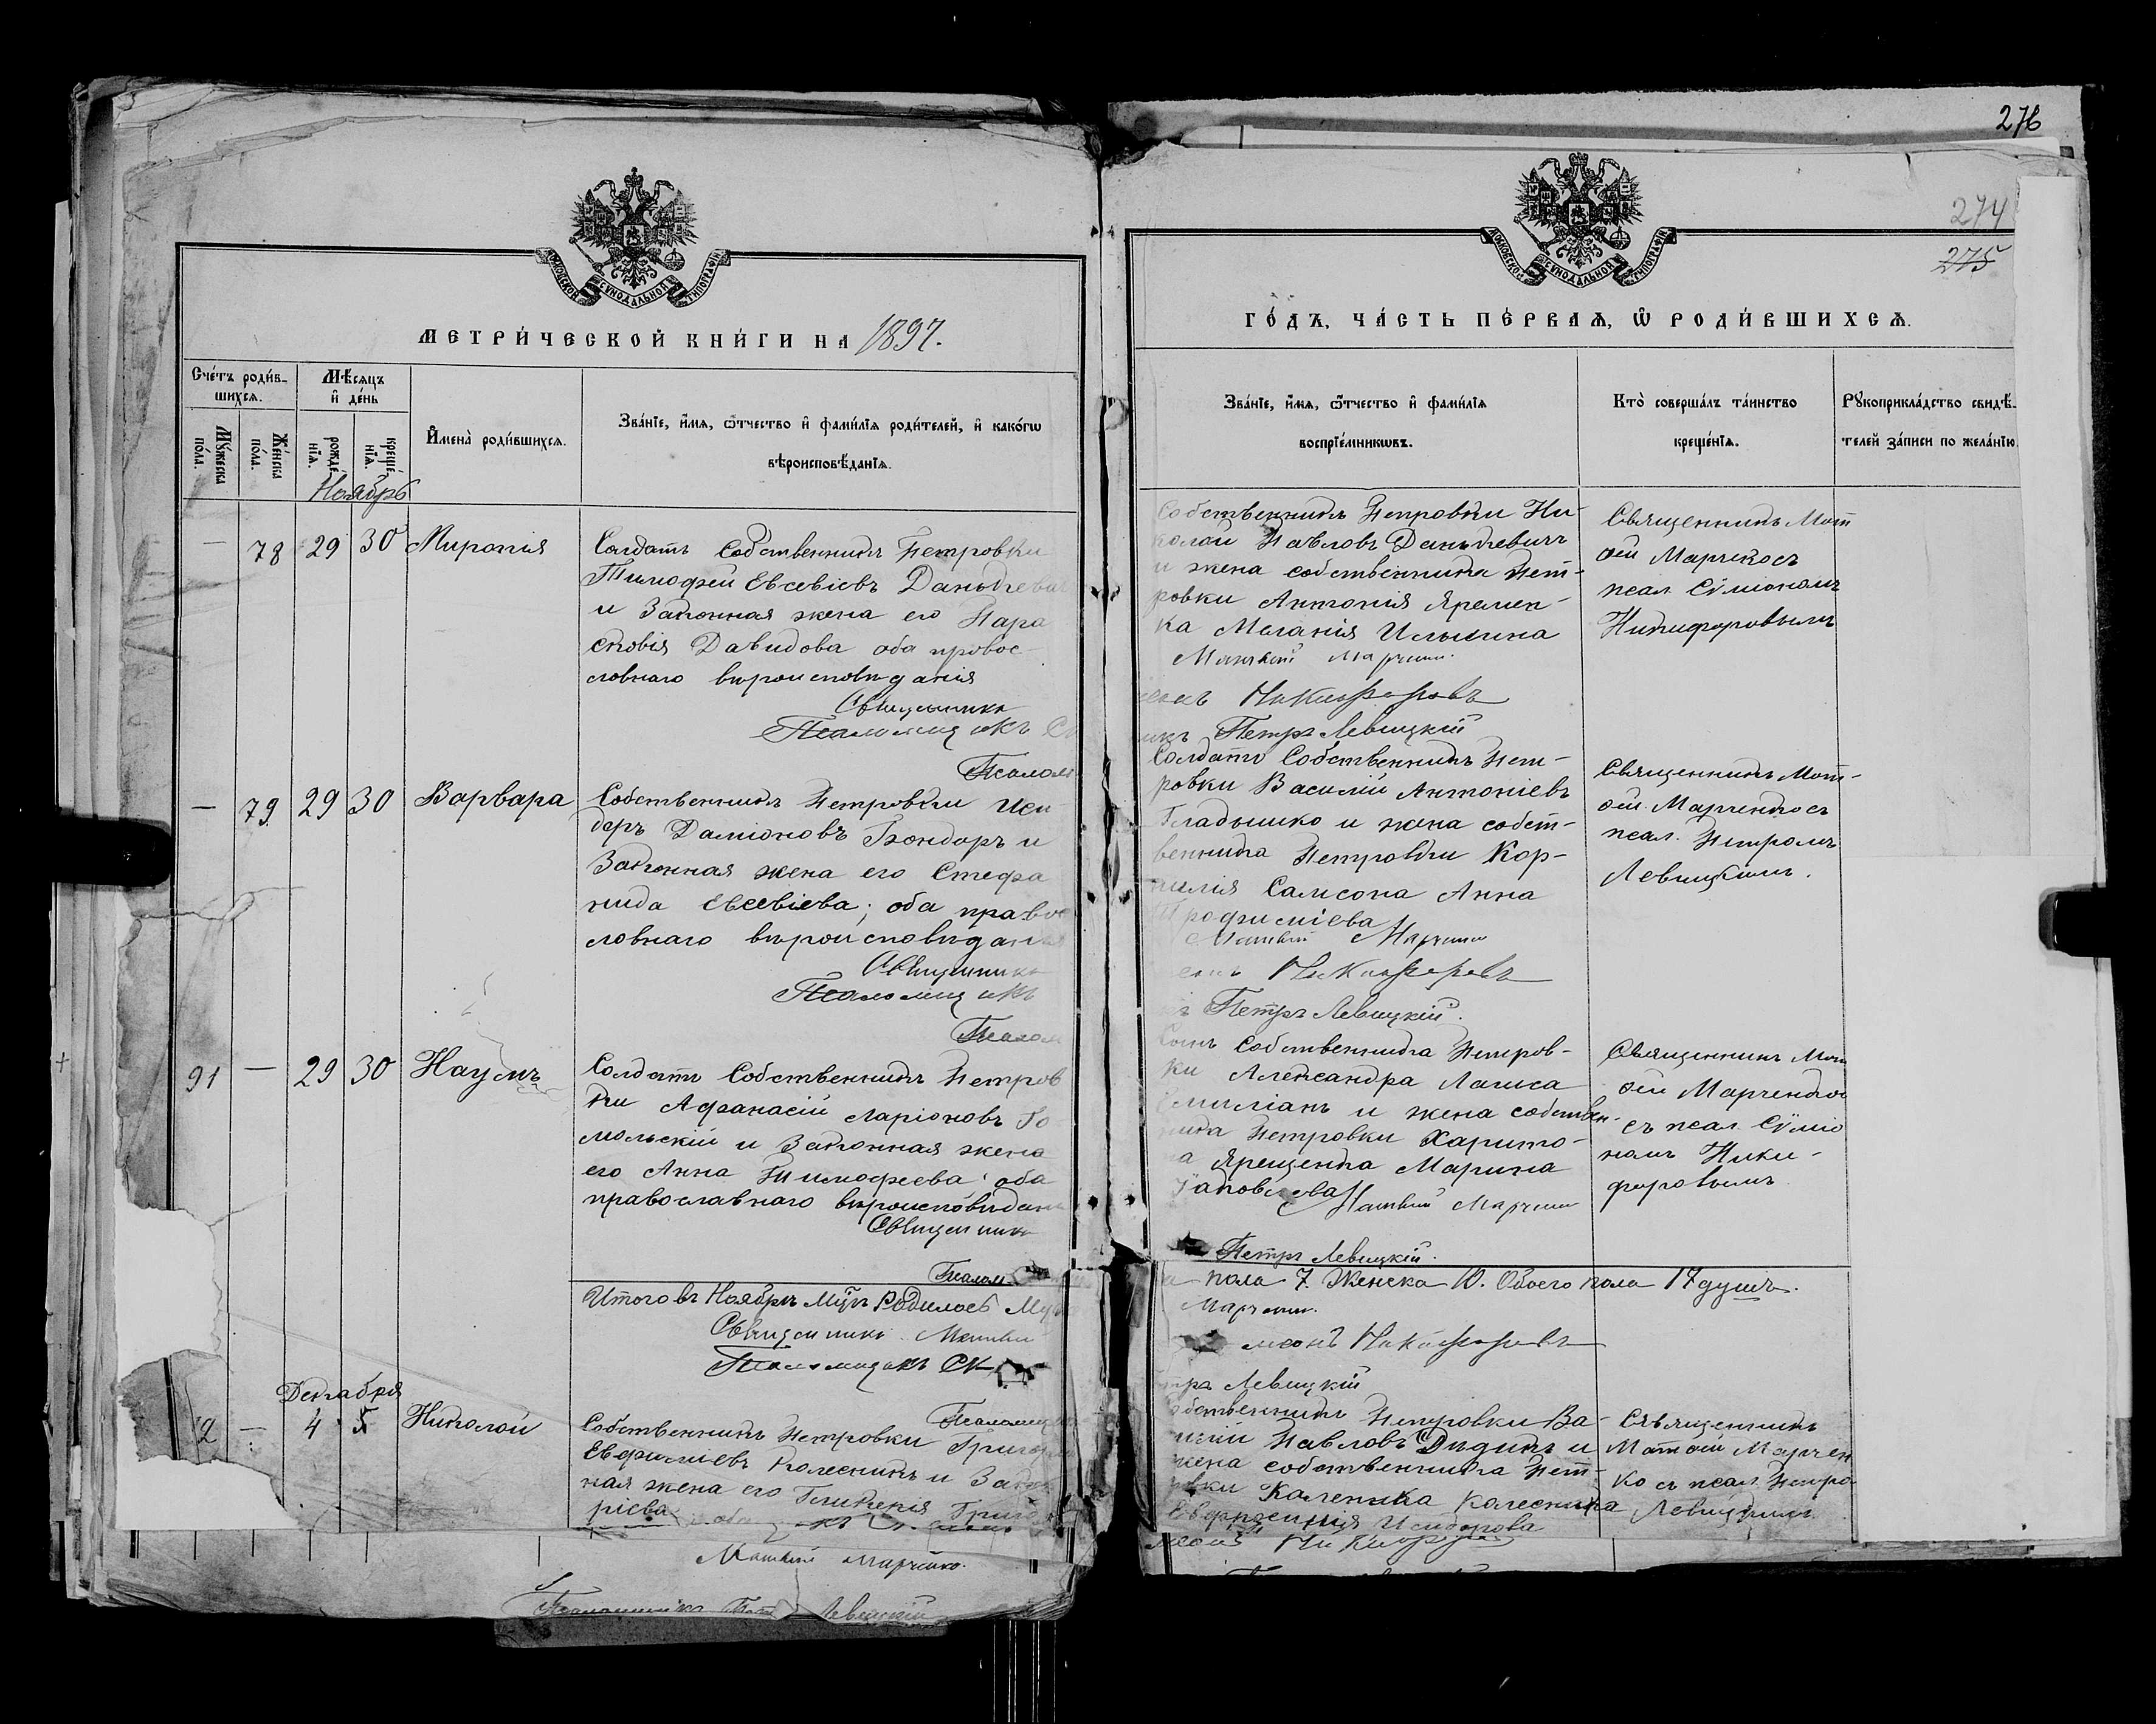 276
274
275
МОСКОВСКОЙ СѴНОДАЛЬНОЙ ТИПОГРАФІИ
МОСКОВСКОЙ СѴНОДАЛЬНОЙ ТИПОГРАФІИ
МЕТРИ́ЧЕСКОЙ КНИ́ГИ НА 1897.
ГО́ДЪ, ЧА́СТЬ ПЕ́РВАЯ, Ѽ РОДИ́ВШИХСЯ.
Сче́тъ роди́в-
шихся.
Мѣ́сяцъ
и҆ де́нь
Му́жеска
по́ла.
Же́нска
по́ла.
рожде́-
нїя.
креще́-
нїя.
И҆мена̀ роди́вшихся.
Зва́нїе, и҆́мя, ѻ҆́тчество и҆ фами́лїя роди́телей, и҆ како́гѡ
вѣроисповѣ́данїя.
Зва́нїе, и҆́мя, ѻ҆́тчество и҆ фами́лїя
воспрїе́мникѡвъ.
Кто̀ соверша́лъ та́инство
креще́нїя.
Рꙋкоприкла́дство свидѣ́-
телей за́писи по жела́нїю.
Ноябрь
— 78 29 30 Миропія
Солдатъ Собственникъ Петровки
Тимофей Евсевіевъ
и Законная жена его Пара
сковія Давидова оба провос-
ловнаго вѣроисповѣданія
Священникъ
Псаломщикъ
Псалом
Собственникъ Петровки Ни-
колай Павловъ Даньдгевичъ
и жена собственника Пет-
ровки Антонія Яремен-
ка Меланія Ильина
Матвій Марченко
Никифоровъ
Петръ Левицкій
Священникъ Мат
фей Марченко съ
псал. Сѵмеономъ
Никифоровымъ
— 79. 29 30 Варвара
Собственникъ Петровки Иси
доръ Даміоновъ Бондаръ и
Законная жена его Стефа
нида Евсевіева; оба право
словнаго вѣроисповѣданія
Священникъ
Псаломщикъ
Псалом
Солдатъ Собственникъ Пет-
ровки Василій Антоніевъ
Гладышко и жена собст-
венника Петровки Кор-
нилія Самсона Анна
Трофиміева
Матвій Марченко
Никифоровъ
Петръ Левицкій.
Священникъ Мат-
фей Марченко съ
псал. Петромъ
Левицкимъ.
91 — 29 30 Наумъ
Солдатъ Собственникъ Петров
ки Афанасій Ларіоновъ Го
мольскій и Законная жена
его Анна Тимофеева; оба
православнаго вѣроисповѣдан
Священникъ
Псалом
Сынъ Собственника Петров-
ки Александра Лагиса
Емиліанъ и жена собствен-
ника Петровки Харито-
на Ярещенка Марина
Яковлева
Матвій Марченко
Петръ Левицкій.
Священникъ Мат
фей Марченко
съ псал. Сѵмео
номъ Ники-
форовымъ.
Итого въ Ноябрѣ М-цѣ Родилось Му
пола 7. Женска 10. Обоего пола 17 душъ.
Священникъ Матвій
Марченко.
Псаломщикъ
меонъ Никифоровъ
Псаломщи
тръ Левицкій
Декабря
2 — 4 5 Николай
Собственникъ Петровки Григорій
Евфиміевъ Колесникъ и Закон
ная жена его Гликерія Григо
ріева
Собственникъ Петровки Ва-
силій Павловъ Дидикъ и
жена собственника Пет-
ровки Каленика Колесника
Евфросинія Исидорова
Никифоровъ
Священникъ
Матфей Марчен
ко съ псал. Петро
Левицкимъ
Матвій Марченко.
Псаломщикъ Петръ Левицкій